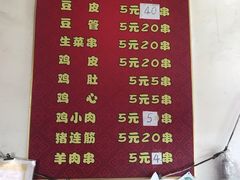 豆皮 5元40串
豆管 5元20串
生菜串 5元20串
鸡皮 5元20串
鸡肚 5元5串
鸡心 5元5串
鸡小肉 5元5串
猪连筋 5元20串
羊肉串 5元4串